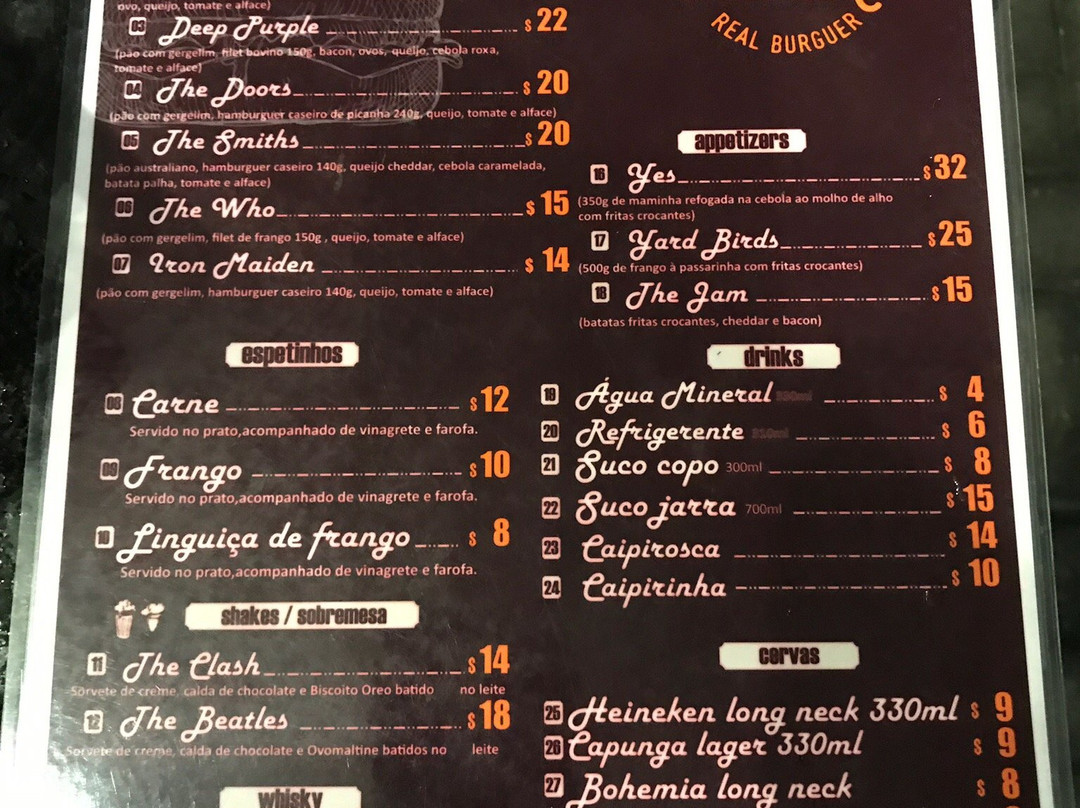 ovo, queijo, tomate e alface)
03 Deep Purple $ 22
(pão com gergelim, filet bovino 150g, bacon, ovos, queijo, cebola roxa,
tomate e alface)
04 The Doors $ 20
(pão com gergelim, hamburguer caseiro de picanha 240g, queijo, tomate e alface)
05 The Smiths $ 20
(pão australiano, hamburguer caseiro 140g, queijo cheddar, cebola caramelada,
batata palha, tomate e alface)
06 The Who $ 15
(pão com gergelim, filet de frango 150g , queijo, tomate e alface)
07 Iron Maiden $ 14
(pão com gergelim, hamburguer caseiro 140g, queijo, tomate e alface)
espetinhos
08 Carne $ 12
Servido no prato,acompanhado de vinagrete e farofa.
09 Frango $ 10
Servido no prato,acompanhado de vinagrete e farofa.
10 Linguiça de frango $ 8
Servido no prato,acompanhado de vinagrete e farofa.
shakes / sobremesa
11 The Clash $ 14
Sorvete de creme, calda de chocolate e Biscoito Oreo batido no leite
12 The Beatles $ 18
Sorvete de creme, calda de chocolate e Ovomaltine batidos no leite
whisky
REAL BURGUER
appetizers
16 Yes $ 32
(350g de maminha refogada na cebola ao molho de alho
com fritas crocantes)
17 Yard Birds $ 25
(500g de frango à passarinha com fritas crocantes)
18 The Jam $ 15
(batatas fritas crocantes, cheddar e bacon)
drinks
19 Água Mineral $ 4
20 Refrigerente $ 6
21 Suco copo 300ml $ 8
22 Suco jarra 700ml $ 15
23 Caipirosca $ 14
24 Caipirinha $ 10
cervas
25 Heineken long neck 330ml $ 9
26 Capunga lager 330ml $ 9
27 Bohemia long neck $ 8